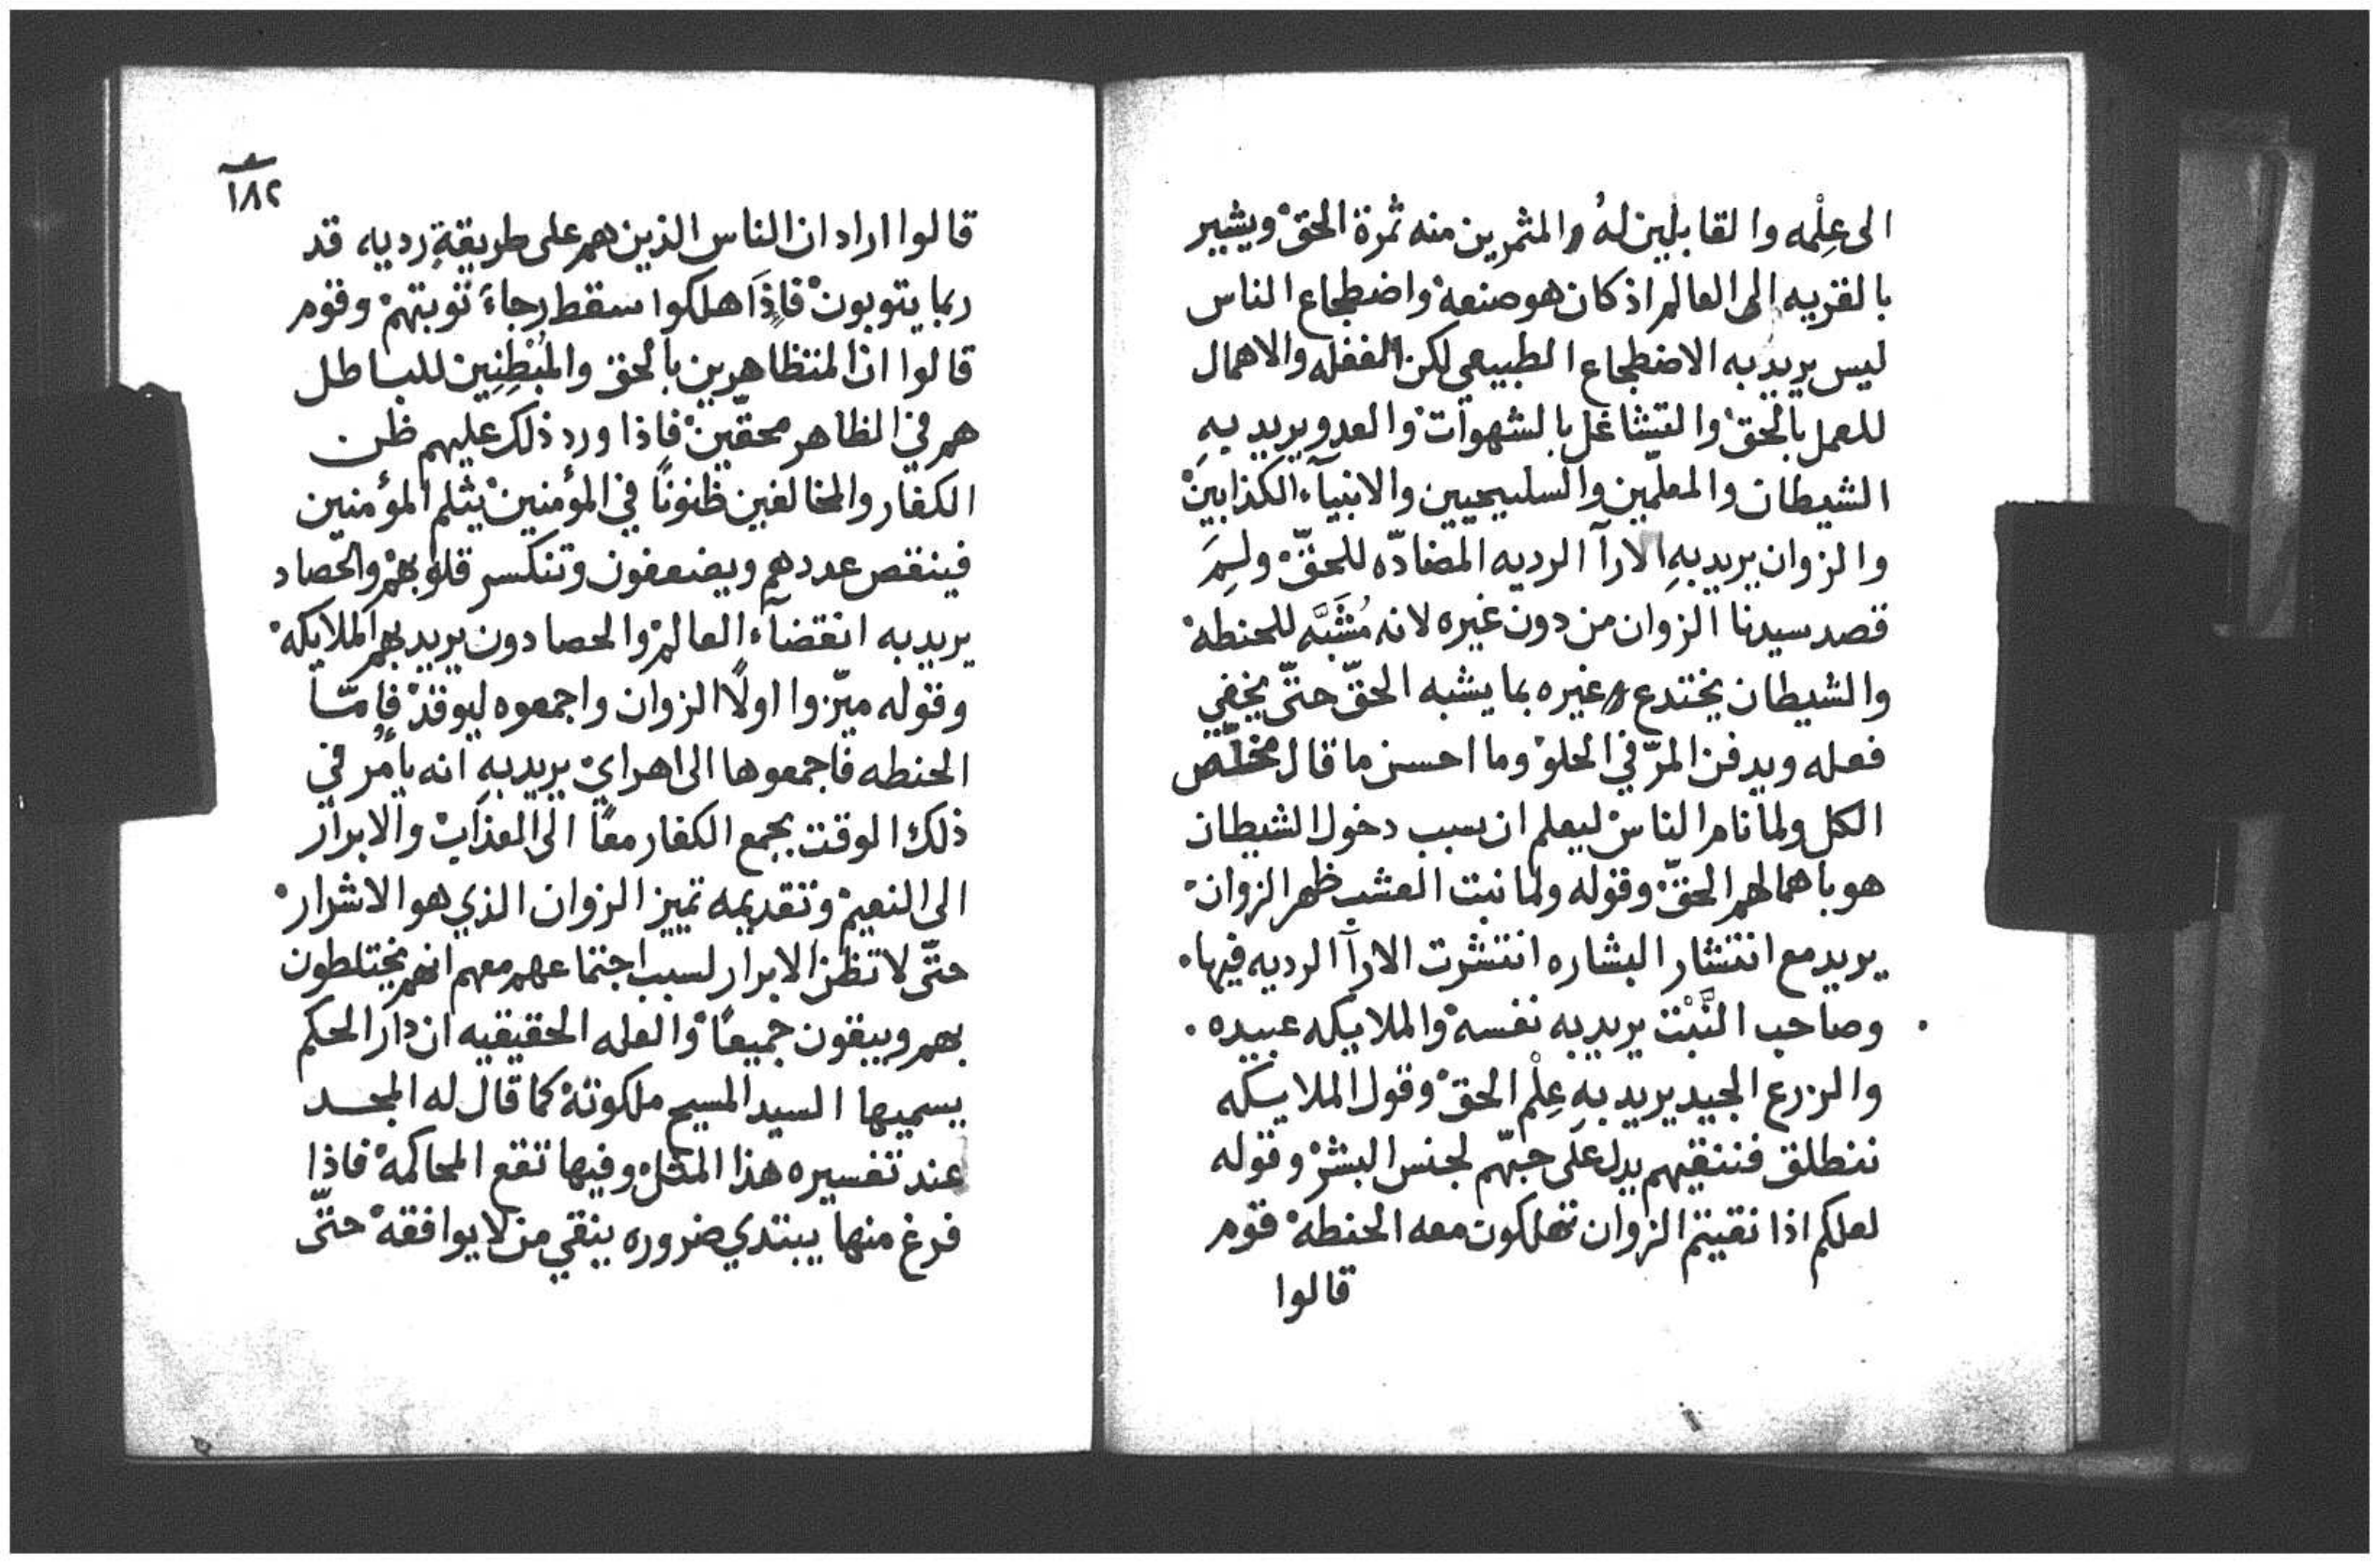 الى عِلْمه والقابلين لهُ والمثمرين منه ثمرة الحق ويشير
بالقريه الى العالم اذ كان هو صنعه واضطجاع الناس
ليس يريد به الاضطجاع الطبيعي لكن الغفله والاهمال
للعمل بالحق والتشاغل بالشهوات والعدو يريد بهِ
الشيطان والمعلمين والسليحيين والانبيآء الكذابين
والزوان يريد بهِ الارآ الرديه المضادّه للحقّ ولِمَ
قصد سيدنا الزوان من دون غيره لانه مُشَبَّه للحنطه
والشيطان يختدع غيره بما يشبه الحقّ حتّى يخفي
فعله ويدفن المرّ في الحلو وما احسن ما قال مخلّص
الكل ولما نام الناس ليعلم ان سبب دخول الشيطان
هو باهمالهم الحقّ وقوله ولما نبت العشب ظهر الزوان
يريد مع انتشار البشاره انتشرت الارآ الرديه فيها
وصاحب النَّبْت يريد به نفسه والملايكه عبيده
والزرع الجيد يريد بهِ عِلْم الحق وقول الملايكه
ننطلق فننقيهم يدل على حبّهم لجنس البشر وقوله
لعلكم اذا نقيتم الزوان تهلكون معه الحنطه قوم
قالوا
١٨٢
قالوا اراد ان الناس الذين هم على طريقةِ رديه قد
ربما يتوبون فاِذَا هلكوا سقط رجاءَ توبتهم وقوم
قالوا ان المتظاهرين بالحق والمُبْطِنِين للباطل
هم في الظاهر محقّين فاِذا ورد ذلك عليهم ظن
الكفار والمخالفين ظنونًا في المؤمنين يثلم المؤمنين
فينقص عددهم ويضعفون وتنكسر قلوبهم والحصاد
يريد به انقضآء العالم والحصادون يريد بهم الملايكه
وقوله ميّزوا اولًا الزوان واجمعوه ليوقد فاِمّا
الحنطه فاجمعوها الى اهراي يريد بهِ انه يامر في
ذلك الوقت بجمع الكفار معًا الى العذاب والابرار
الى النعيم وتقديمه تميز الزوان الذي هو الاشرار
حتّى لا تظن الابرار لسبب اجتماعهم معهم انهم يختلطون
بهم ويبقون جميعًا والعله الحقيقيه ان دار الحكم
يسميها السيد المسيح ملكوته كما قال له المجد
عند تفسيره هذا المثل وفيها تقع المحاكمه فاذا
فرغ منها يبتدي ضروره ينقي من لا يوافقه حتّى